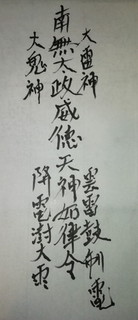 大雷神
雲雷鼓制電
南無大政威德天神如律令
大鬼神
降雹澍大雨